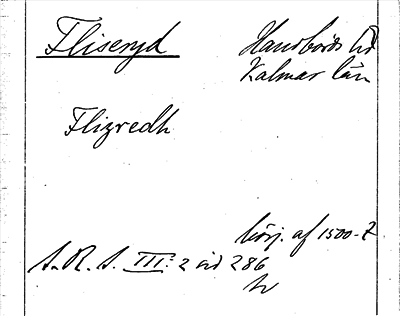 Fliseryd
Handbörds hd
Kalmar län
Flizredh
börj. af 1500-t
S.R.S. III:2 sid 286